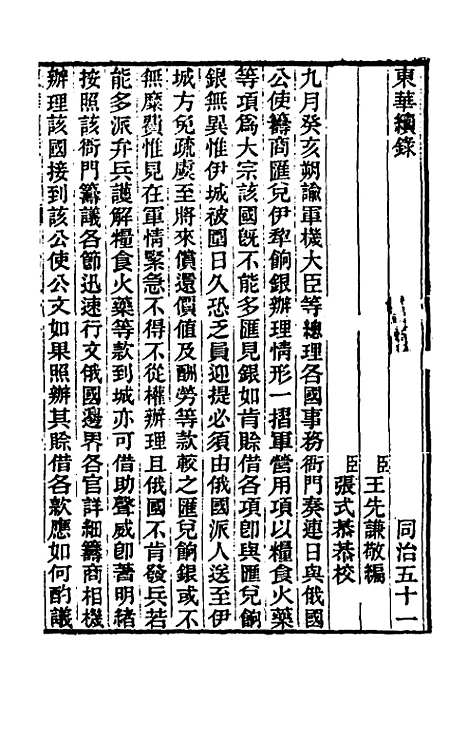 東華續錄 同治五十一
臣王先謙敬編
臣張式恭恭校
九月癸亥朔諭軍機大臣等總理各國事務衙門奏連日與俄國
公使籌商匯兌伊犂餉銀辦理情形一摺軍營用項以糧食火藥
等項爲大宗該國旣不能多匯見銀如肯賒借各項卽與匯兌餉
銀無異惟伊城被圍日久恐乏員迎提必須由俄國派人送至伊
城方免疏虞至將來償還價值及酬勞等款較之匯兌餉銀或不
無糜費惟見在軍情緊急不得不從權辦理且俄國不肯發兵若
能多派弁兵護解糧食火藥等款到城亦可借助聲威卽著明緒
按照該衙門籌議各節迅速行文俄國邊界各官詳細籌商相機
辦理該國接到該公使公文如果照辦其賒借各款應如何酌議